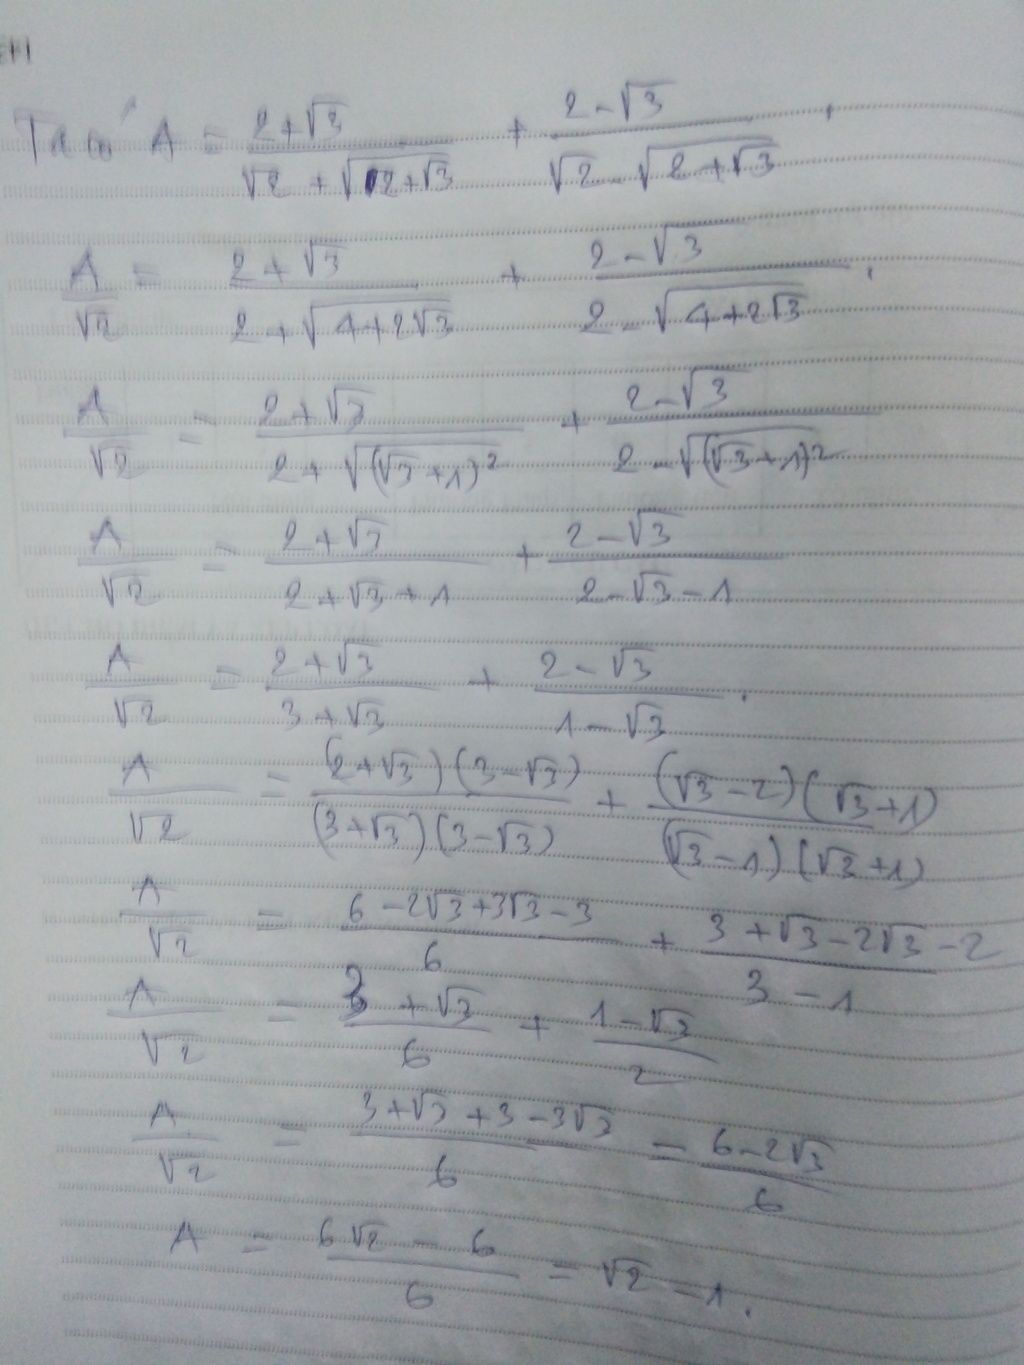 A = (2+√3)/(√2 + √(2+√3)) + (2-√3)/(√2 - √(2+√3)).
A/√2 = (2+√3)/(2+√(4+2√3)) + (2-√3)/(2-√(4+2√3)).
A/√2 = (2+√3)/(2+√((√3+1)²)) + (2-√3)/(2-√((√3+1)²))
A/√2 = (2+√3)/(2+√3+1) + (2-√3)/(2-√3-1)
A/√2 = (2+√3)/(3+√3) + (2-√3)/(1-√3).
A/√2 = (2+√3)(3-√3)/(3+√3)(3-√3) + (√3-2)(√3+1)/(√3-1)(√3+1)
A/√2 = (6-2√3+3√3-3)/6 + (3+√3-2√3-2)/(3-1)
A/√2 = (3+√3)/6 + (1-√3)/2
A/√2 = (3+√3+3-3√3)/6 = (6-2√3)/6
A = (6√2 - 6)/6 = √2 - 1.